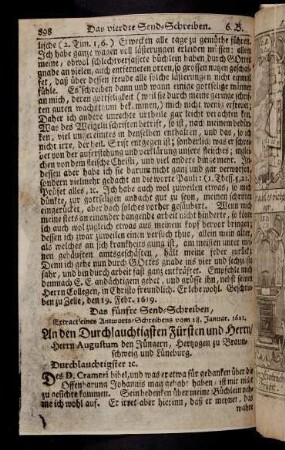 898 Das vierdte Send-Schreiben. 6. B.
lische (2. Tim. 1, 6.) Erwecken alle tage zu gemüthe führen.
Ich habe ganze wagen voll lästerungen erleiden müssen; allein
meine, obwol schlechtverfaßte büchlein haben durch GOttes
gnade an vielen, auch entferneten orten, so grossen nutzen geschaf-
fet, daß über dieser freude alle solche lästerungen nicht einmal
fühle. Es schreiben dann und wann einige gottselige männer
an mich, deren gottseligkeit (weil sie durch meine geringe schrif-
ten zuerst wachsthum bekommen,) mich nicht wenig erfreuet.
Daher ich andere unrechte urtheile gar leicht verachten kan.
Was des Weigels schriften betrifft, so ist, nach meinem bedün-
cken, viel ungereimtes in denselben enthalten, und das, so ich
nicht irre, der heil. Schrift entgegen ist; sonderlich was er schrei-
bet von der auferstehung und verklärung unsers fleisches, meni-
schen von dem fleische Christi, und viel andere dinge mehr. In-
dessen aber habe ich sie darum nicht ganz und gar verworfen,
sondern vielmehr gedacht an die worte Pauli: (1. Thess. 5, 21.)
Prüfet alles, ꝛc. Ich habe auch wol zuweilen etwas, so mich
dünckte, zur gottseligen andacht gut zu seyn, meinen schriften
eingerücket, aber doch solches vorher gesäubert. Wenn mich
meine stets an einander hangende arbeit nicht hinderte, so könte
ich auch wol noch etwas anders, und zwar bessers zeugen,
dessen ich zwar zuweilen einen versuch thue, allein wenn mehr
als welches an sich kranckheits gnug ist, am meisten aber unter
den gehäuften amtsgeschäften, halb todt gebohren werden.
Denn ich gehe nun durch GOttes gnade ins vier und sechzigste
jahr, und bin durch arbeit fast ganz entkräftet. Empfehle mich
demnach E. E. andächtigem gebet, und grüsse ihn, nebst seinem
Herrn Collegen, in Christo freundlich. Er lebe wohl. Geschrie-
ben zu Zelle, den 19. Febr. 1619.
Das fünfte Send-Schreiben,
Extract eines Antworts-Schreibens vom 28. Januar. 1621.
An den Durchlauchtigsten Fürsten und Herrn/
Herrn Augustum den Jüngern, Hertzogen zu Braun-
schweig und Lüneburg.
Durchlauchtigster ꝛc.
Des D. Crameri bibel, und was er etwa für gedancken über die
Offenbarung Johannis mag gehabt haben, ist mir nicht
zu gesichte kommen. Sein bedencken über meine Büchlein neh-
me ich wohl auf. Er irret aber hierinn, daß er meynet, das
wahre